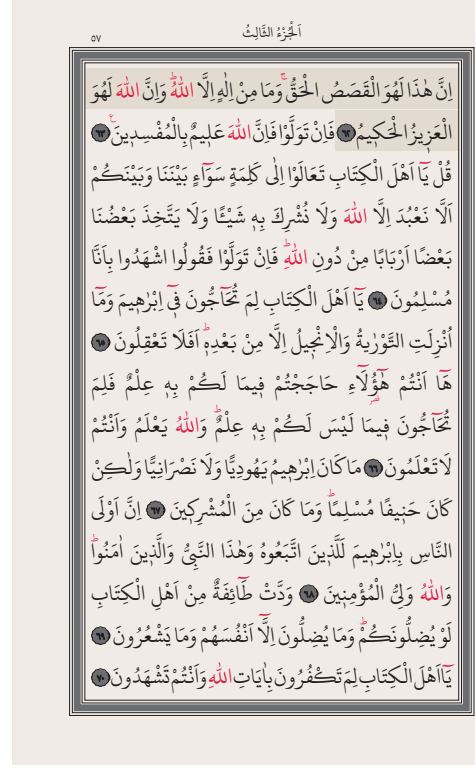 ٥٧ اَلْجُزْءُ الثَّالِثُ
اِنَّ هٰذَا لَهُوَ الْقَصَصُ الْحَقُّۚ وَمَا مِنْ اِلٰهٍ اِلَّا اللّٰهُۜ وَاِنَّ اللّٰهَ لَهُوَ
الْعَزٖيزُ الْحَكٖيمُ ﴿٦٢﴾ فَاِنْ تَوَلَّوْا فَاِنَّ اللّٰهَ عَلٖيمٌ بِالْمُفْسِدٖينَۚ ﴿٦٣﴾
قُلْ يَٓا اَهْلَ الْكِتَابِ تَعَالَوْا اِلٰى كَلِمَةٍ سَوَٓاءٍ بَيْنَنَا وَبَيْنَكُمْ
اَلَّا نَعْبُدَ اِلَّا اللّٰهَ وَلَا نُشْرِكَ بِهٖ شَيْـًٔا وَلَا يَتَّخِذَ بَعْضُنَا
بَعْضًا اَرْبَابًا مِنْ دُونِ اللّٰهِۜ فَاِنْ تَوَلَّوْا فَقُولُوا اشْهَدُوا بِاَنَّا
مُسْلِمُونَ ﴿٦٤﴾ يَٓا اَهْلَ الْكِتَابِ لِمَ تُحَٓاجُّونَ فٖٓي اِبْرٰهٖيمَ وَمَٓا
اُنْزِلَتِ التَّوْرٰيةُ وَالْاِنْجٖيلُ اِلَّا مِنْ بَعْدِهٖۜ اَفَلَا تَعْقِلُونَ ﴿٦٥﴾
هَٓا اَنْتُمْ هٰٓؤُ۬لَٓاءِ حَاجَجْتُمْ فٖيمَا لَكُمْ بِهٖ عِلْمٌ فَلِمَ
تُحَٓاجُّونَ فٖيمَا لَيْسَ لَكُمْ بِهٖ عِلْمٌۜ وَاللّٰهُ يَعْلَمُ وَاَنْتُمْ
لَا تَعْلَمُونَ ﴿٦٦﴾ مَا كَانَ اِبْرٰهٖيمُ يَهُودِيًّا وَلَا نَصْرَانِيًّا وَلٰكِنْ
كَانَ حَنٖيفًا مُسْلِمًاۜ وَمَا كَانَ مِنَ الْمُشْرِكٖينَ ﴿٦٧﴾ اِنَّ اَوْلَى
النَّاسِ بِاِبْرٰهٖيمَ لَلَّذٖينَ اتَّبَعُوهُ وَهٰذَا النَّبِيُّ وَالَّذٖينَ اٰمَنُواۜ
وَاللّٰهُ وَلِيُّ الْمُؤْمِنٖينَ ﴿٦٨﴾ وَدَّتْ طَٓائِفَةٌ مِنْ اَهْلِ الْكِتَابِ
لَوْ يُضِلُّونَكُمْۜ وَمَا يُضِلُّونَ اِلَّٓا اَنْفُسَهُمْ وَمَا يَشْعُرُونَ ﴿٦٩﴾
يَٓا اَهْلَ الْكِتَابِ لِمَ تَكْفُرُونَ بِاٰيَاتِ اللّٰهِ وَاَنْتُمْ تَشْهَدُونَ ﴿٧٠﴾